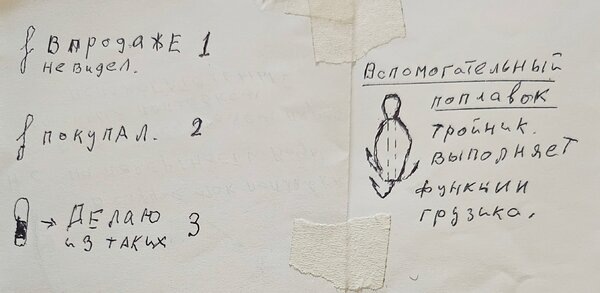 В ПРОДАЖЕ 1
НЕ ВИДЕЛ.
ПОКУПАЛ. 2
→ ДЕЛАЮ 3
ИЗ ТАКИХ
ВСПОМОГАТЕЛЬНЫЙ
ПОПЛАВОК
ТРОЙНИК.
ВЫПОЛНЯЕТ
ФУНКЦИИ
ГРУЗИКА.